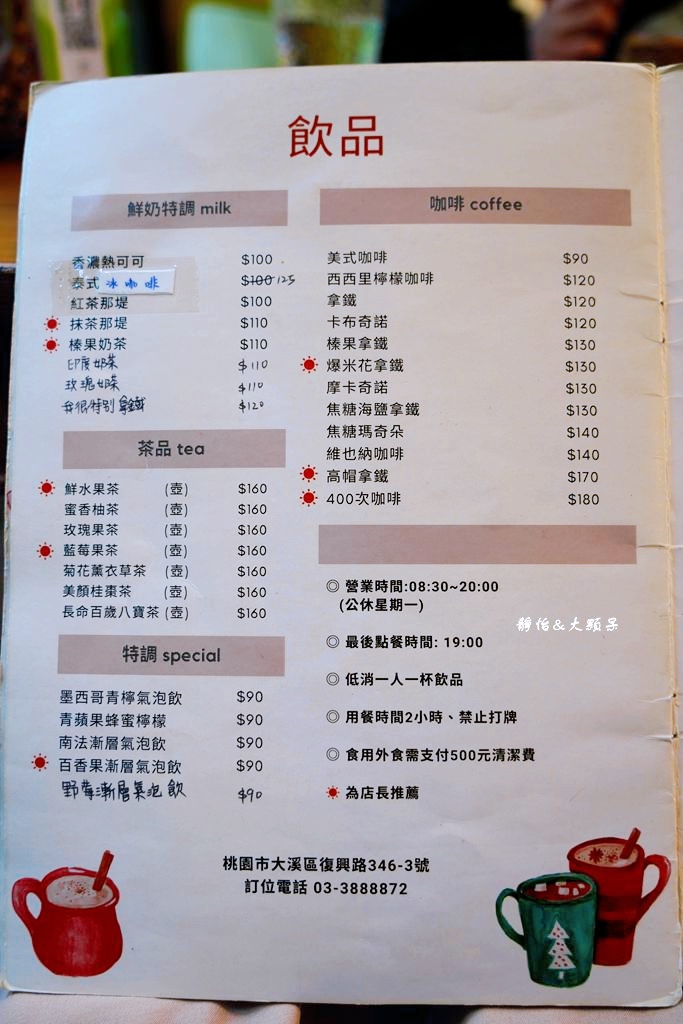 飲品
鮮奶特調 milk
香濃熱可可 $100
泰式冰咖啡 $100 125
紅茶那堤 $100
抹茶那堤 $110
榛果奶茶 $110
印度奶茶 $110
玫瑰奶茶 $110
我很特別拿鐵 $120
茶品 tea
鮮水果茶 (壺) $160
蜜香柚茶 (壺) $160
玫瑰果茶 (壺) $160
藍莓果茶 (壺) $160
菊花薰衣草茶 (壺) $160
美顏桂棗茶 (壺) $160
長命百歲八寶茶 (壺) $160
特調 special
墨西哥青檸氣泡飲 $90
青蘋果蜂蜜檸檬 $90
南法漸層氣泡飲 $90
百香果漸層氣泡飲 $90
野莓漸層氣泡飲 $90
咖啡 coffee
美式咖啡 $90
西西里檸檬咖啡 $120
拿鐵 $120
卡布奇諾 $120
榛果拿鐵 $130
爆米花拿鐵 $130
摩卡奇諾 $130
焦糖海鹽拿鐵 $130
焦糖瑪奇朵 $140
維也納咖啡 $140
高帽拿鐵 $170
400次咖啡 $180
◎ 營業時間:08:30~20:00
(公休星期一)
◎ 最後點餐時間: 19:00
◎ 低消一人一杯飲品
◎ 用餐時間2小時、禁止打牌
◎ 食用外食需支付500元清潔費
為店長推薦
靜怡&大顆呆
桃園市大溪區復興路346-3號
訂位電話 03-3888872